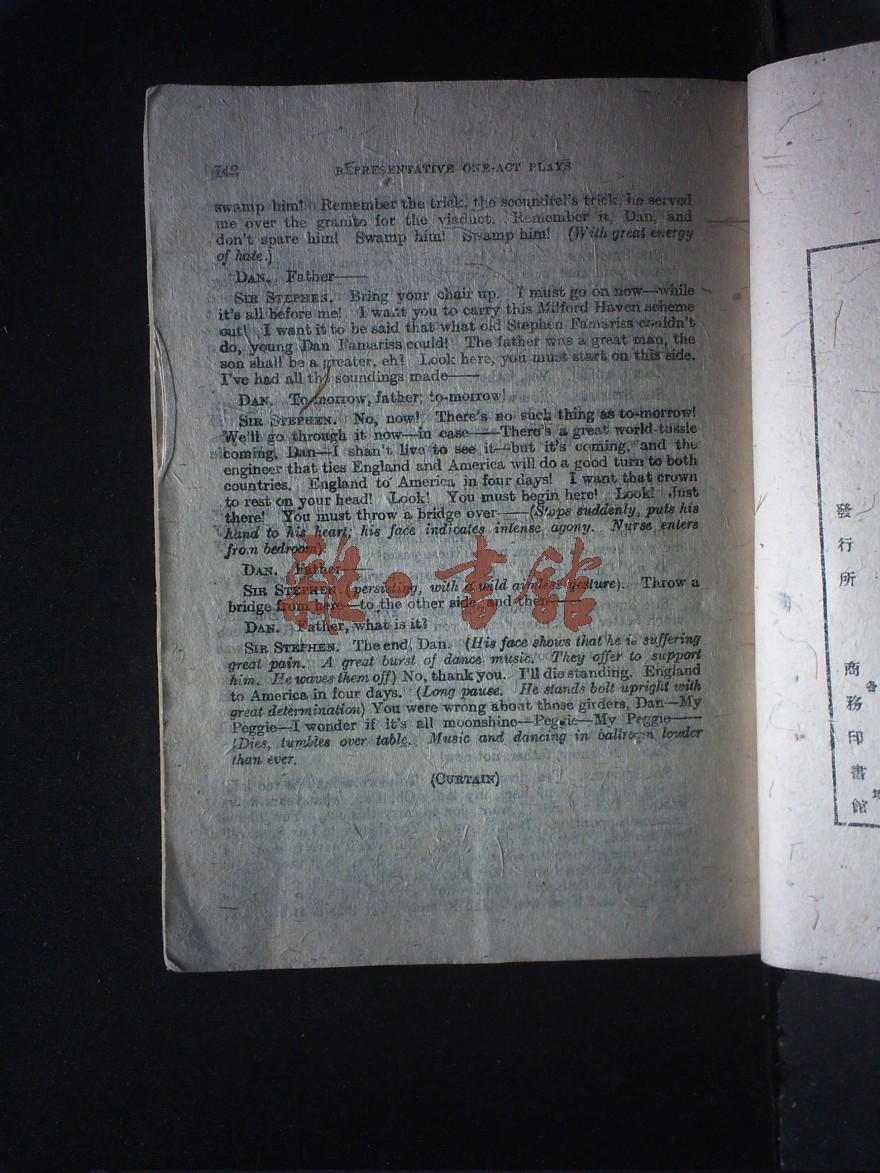 142 REPRESENTATIVE ONE-ACT PLAYS
swamp him! Remember the trick, the scoundrel's trick, he served
me over the granite for the viaduct. Remember it, Dan, and
don't spare him! Swamp him! Swamp him! (With great energy
of hate.)
DAN. Father——
SIR STEPHEN. Bring your chair up. I must go on now—while
it's all before me! I want you to carry this Milford Haven scheme
out! I want it to be said that what old Stephen Famariss couldn't
do, young Dan Famariss could! The father was a great man, the
son shall be a greater, eh? Look here, you must start on this side.
I've had all the soundings made——
DAN. To-morrow, father, to-morrow!
SIR STEPHEN. No, now! There's no such thing as to-morrow!
We'll go through it now—in case——There's a great world-tussle
coming, Dan—I shan't live to see it—but it's coming, and the
engineer that ties England and America will do a good turn to both
countries. England to America in four days! I want that crown
to rest on your head! Look! You must begin here! Look! Just
there! You must throw a bridge over——(Stops suddenly, puts his
hand to his heart; his face indicates intense agony. Nurse enters
from bedroom)
DAN. Father——
SIR STEPHEN (persisting, with a wild aimless gesture). Throw a
bridge from here—to the other side, and then——
DAN. Father, what is it?
SIR STEPHEN. The end, Dan. (His face shows that he is suffering
great pain. A great burst of dance music. They offer to support
him. He waves them off) No, thank you. I'll die standing. England
to America in four days. (Long pause. He stands bolt upright with
great determination) You were wrong about those girders, Dan—My
Peggie—I wonder if it's all moonshine—Peggie—My Peggie——
(Dies, tumbles over table. Music and dancing in ballroom louder
than ever.
(CURTAIN)
雜·書館
發行所
商務印書館
各